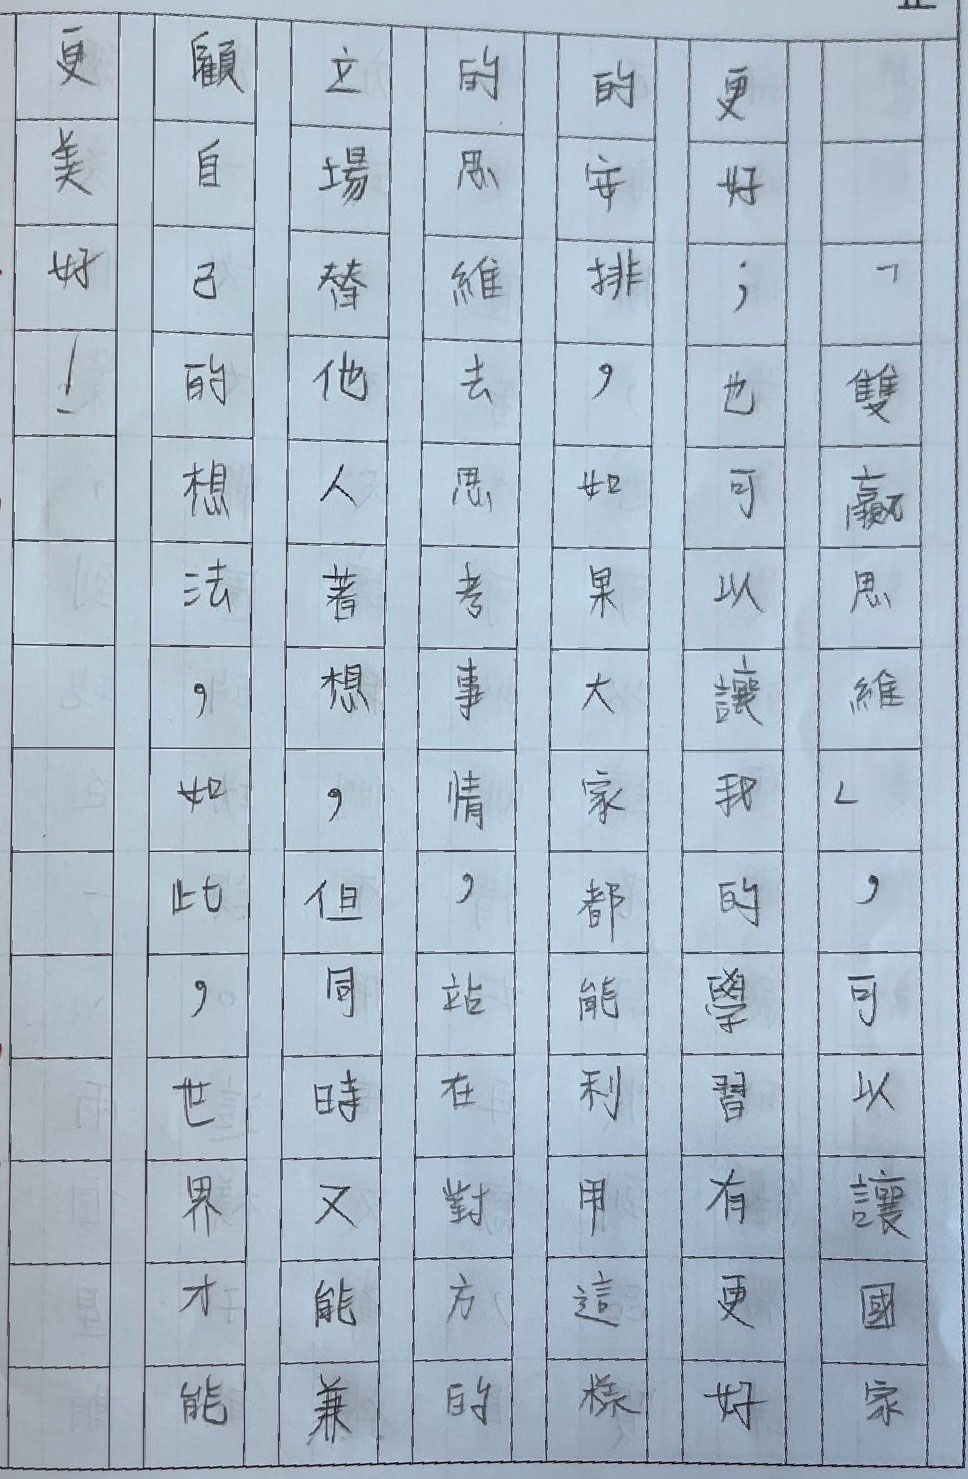 「雙贏思維」，可以讓國家
更好；也可以讓我的學習有更好
的安排，如果大家都能利用這樣
的思維去思考事情，站在對方的
立場替他人著想，但同時又能兼
顧自己的想法，如此，世界才能
更美好！